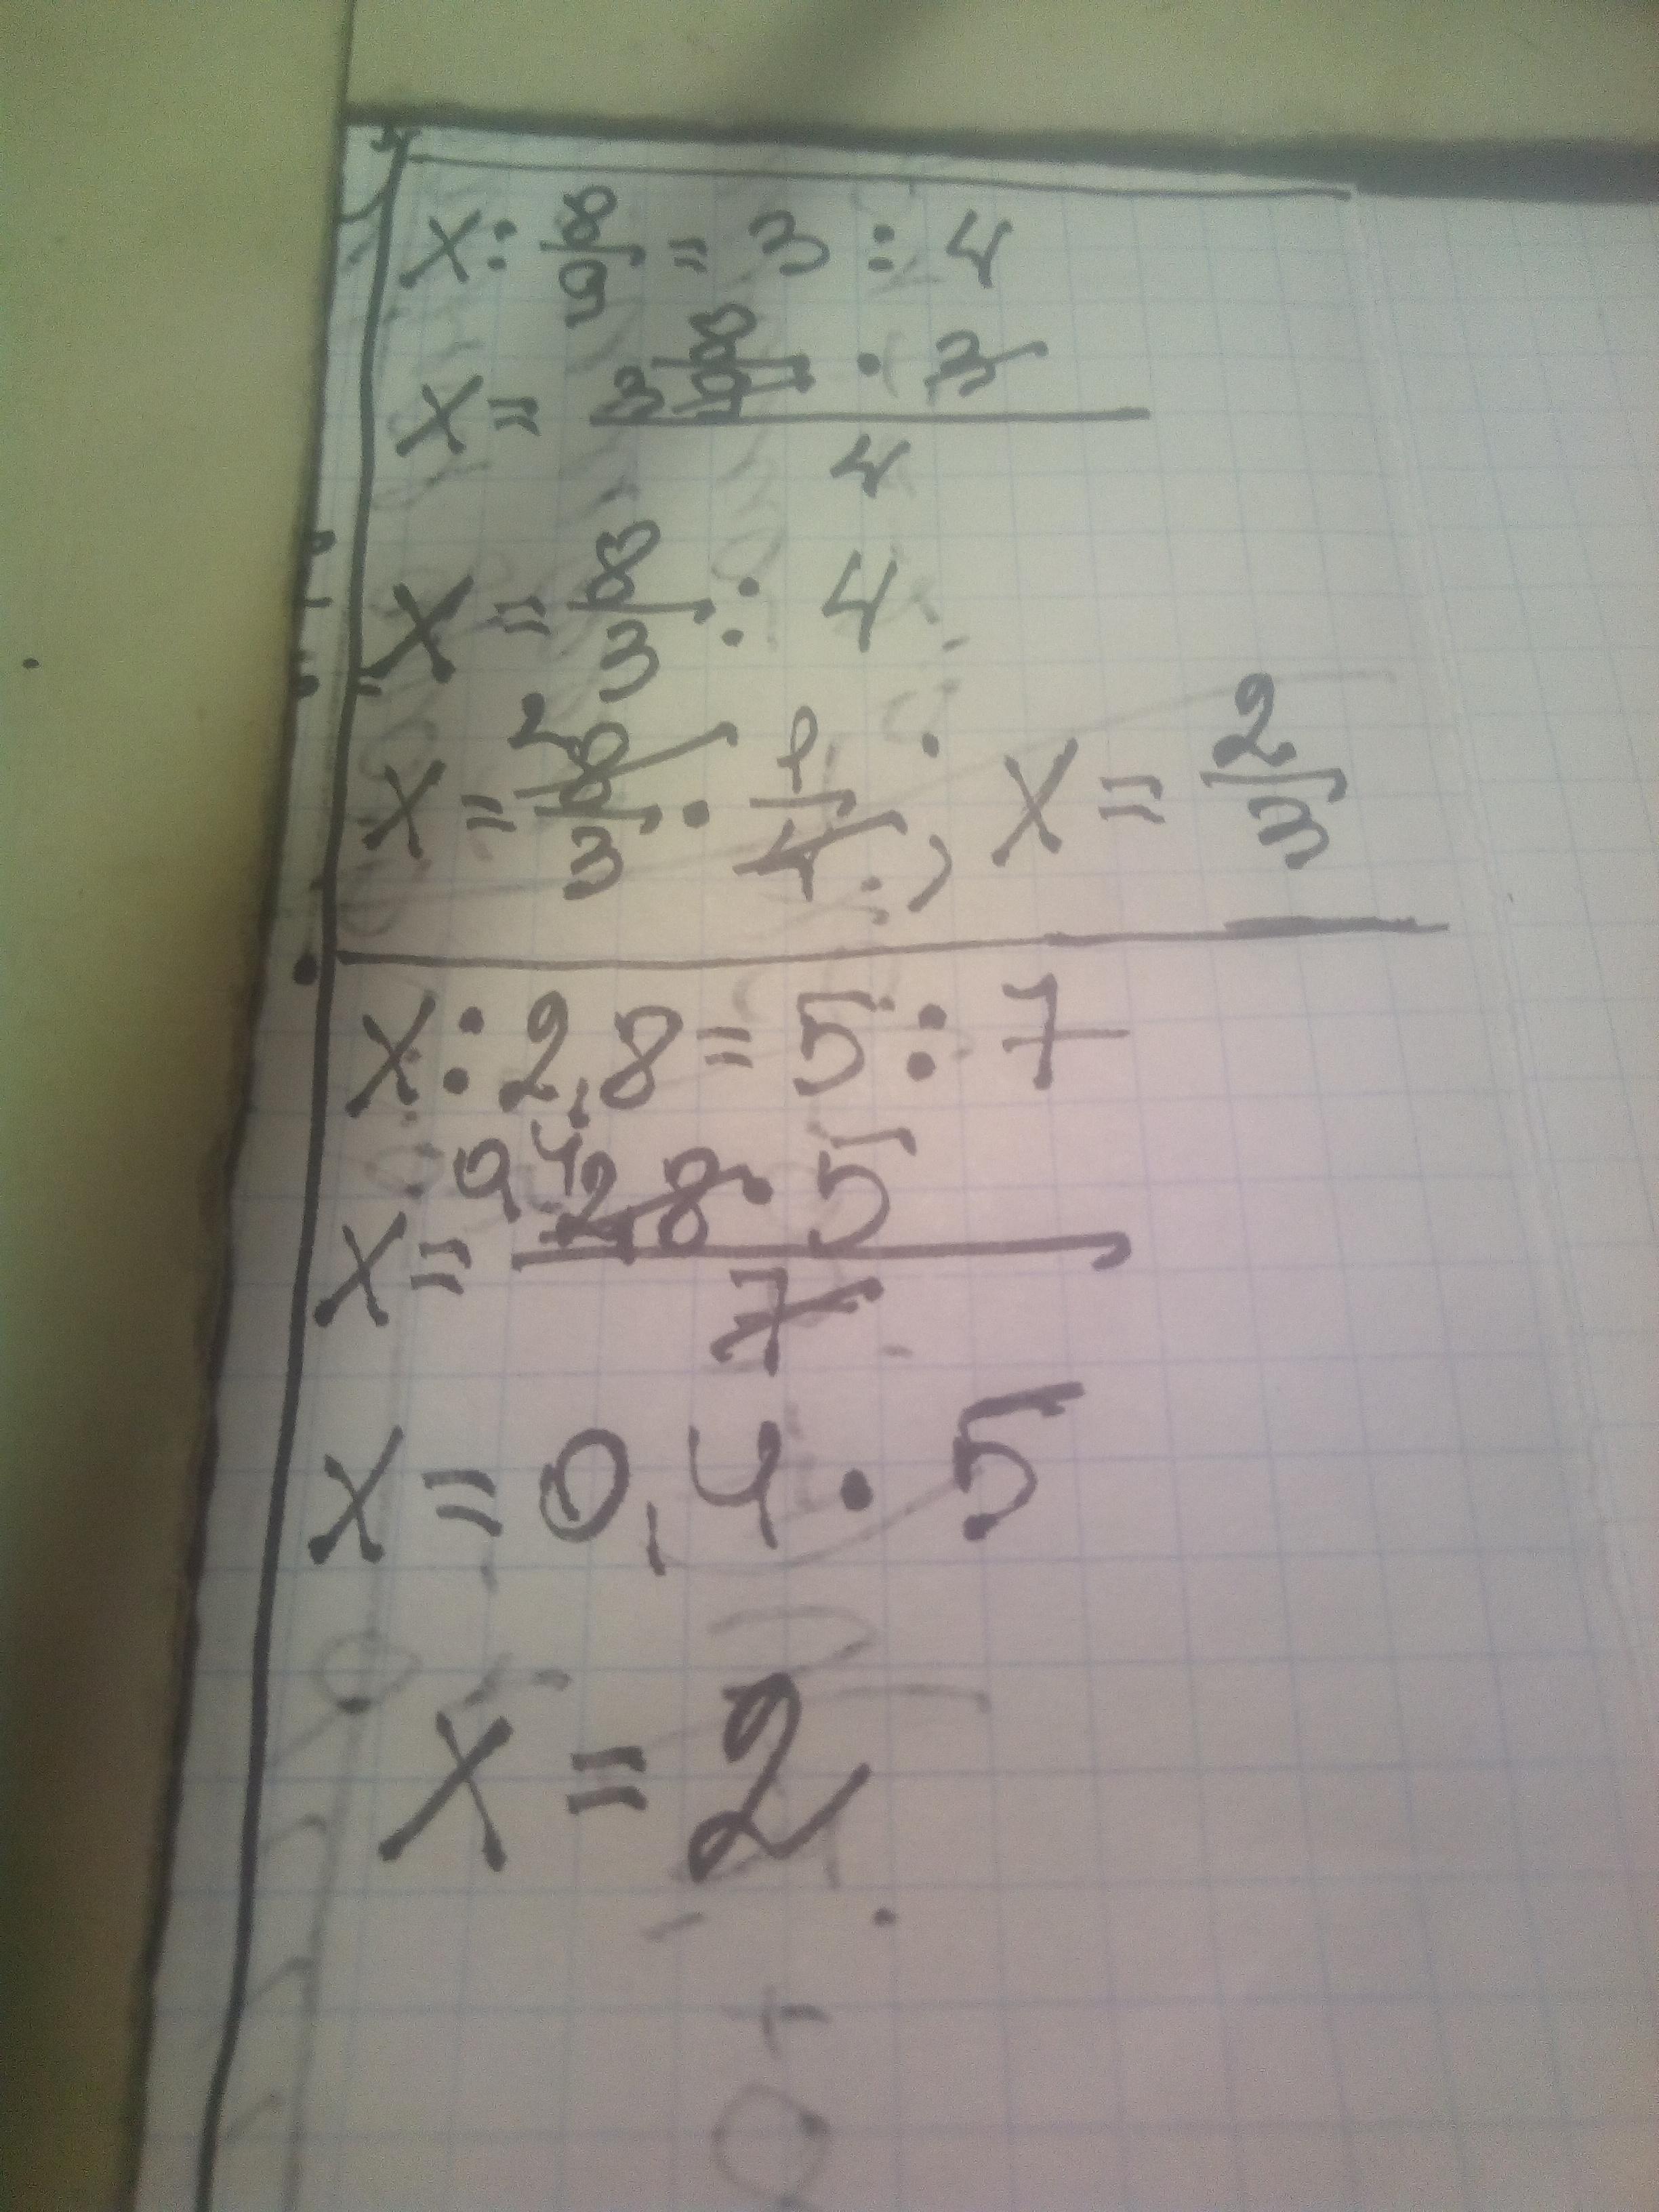 x : 8/9 = 3 : 4
x = 3 8/9 · 3 / 4
x = 8/3 : 4
x = 2 8/3 · 1/4 ; x = 2/3
x : 2,8 = 5 : 7
x = 0,4 2,8 · 5 / 7
x = 0,4 · 5
x = 2